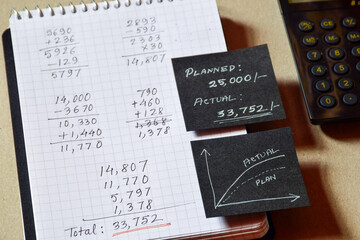 5690
+ 236
5926
- 129
5797
2893
- 590
2303
x 30
14,807
14,000
- 3670
10,330
+ 1,440
11,770
790
+ 460
+ 128
1,368
1,378
14,807
11,770
5,797
1,378
Total: 33,752
PLANNED:
25,000/-
ACTUAL:
33,752/-
ACTUAL
PLAN